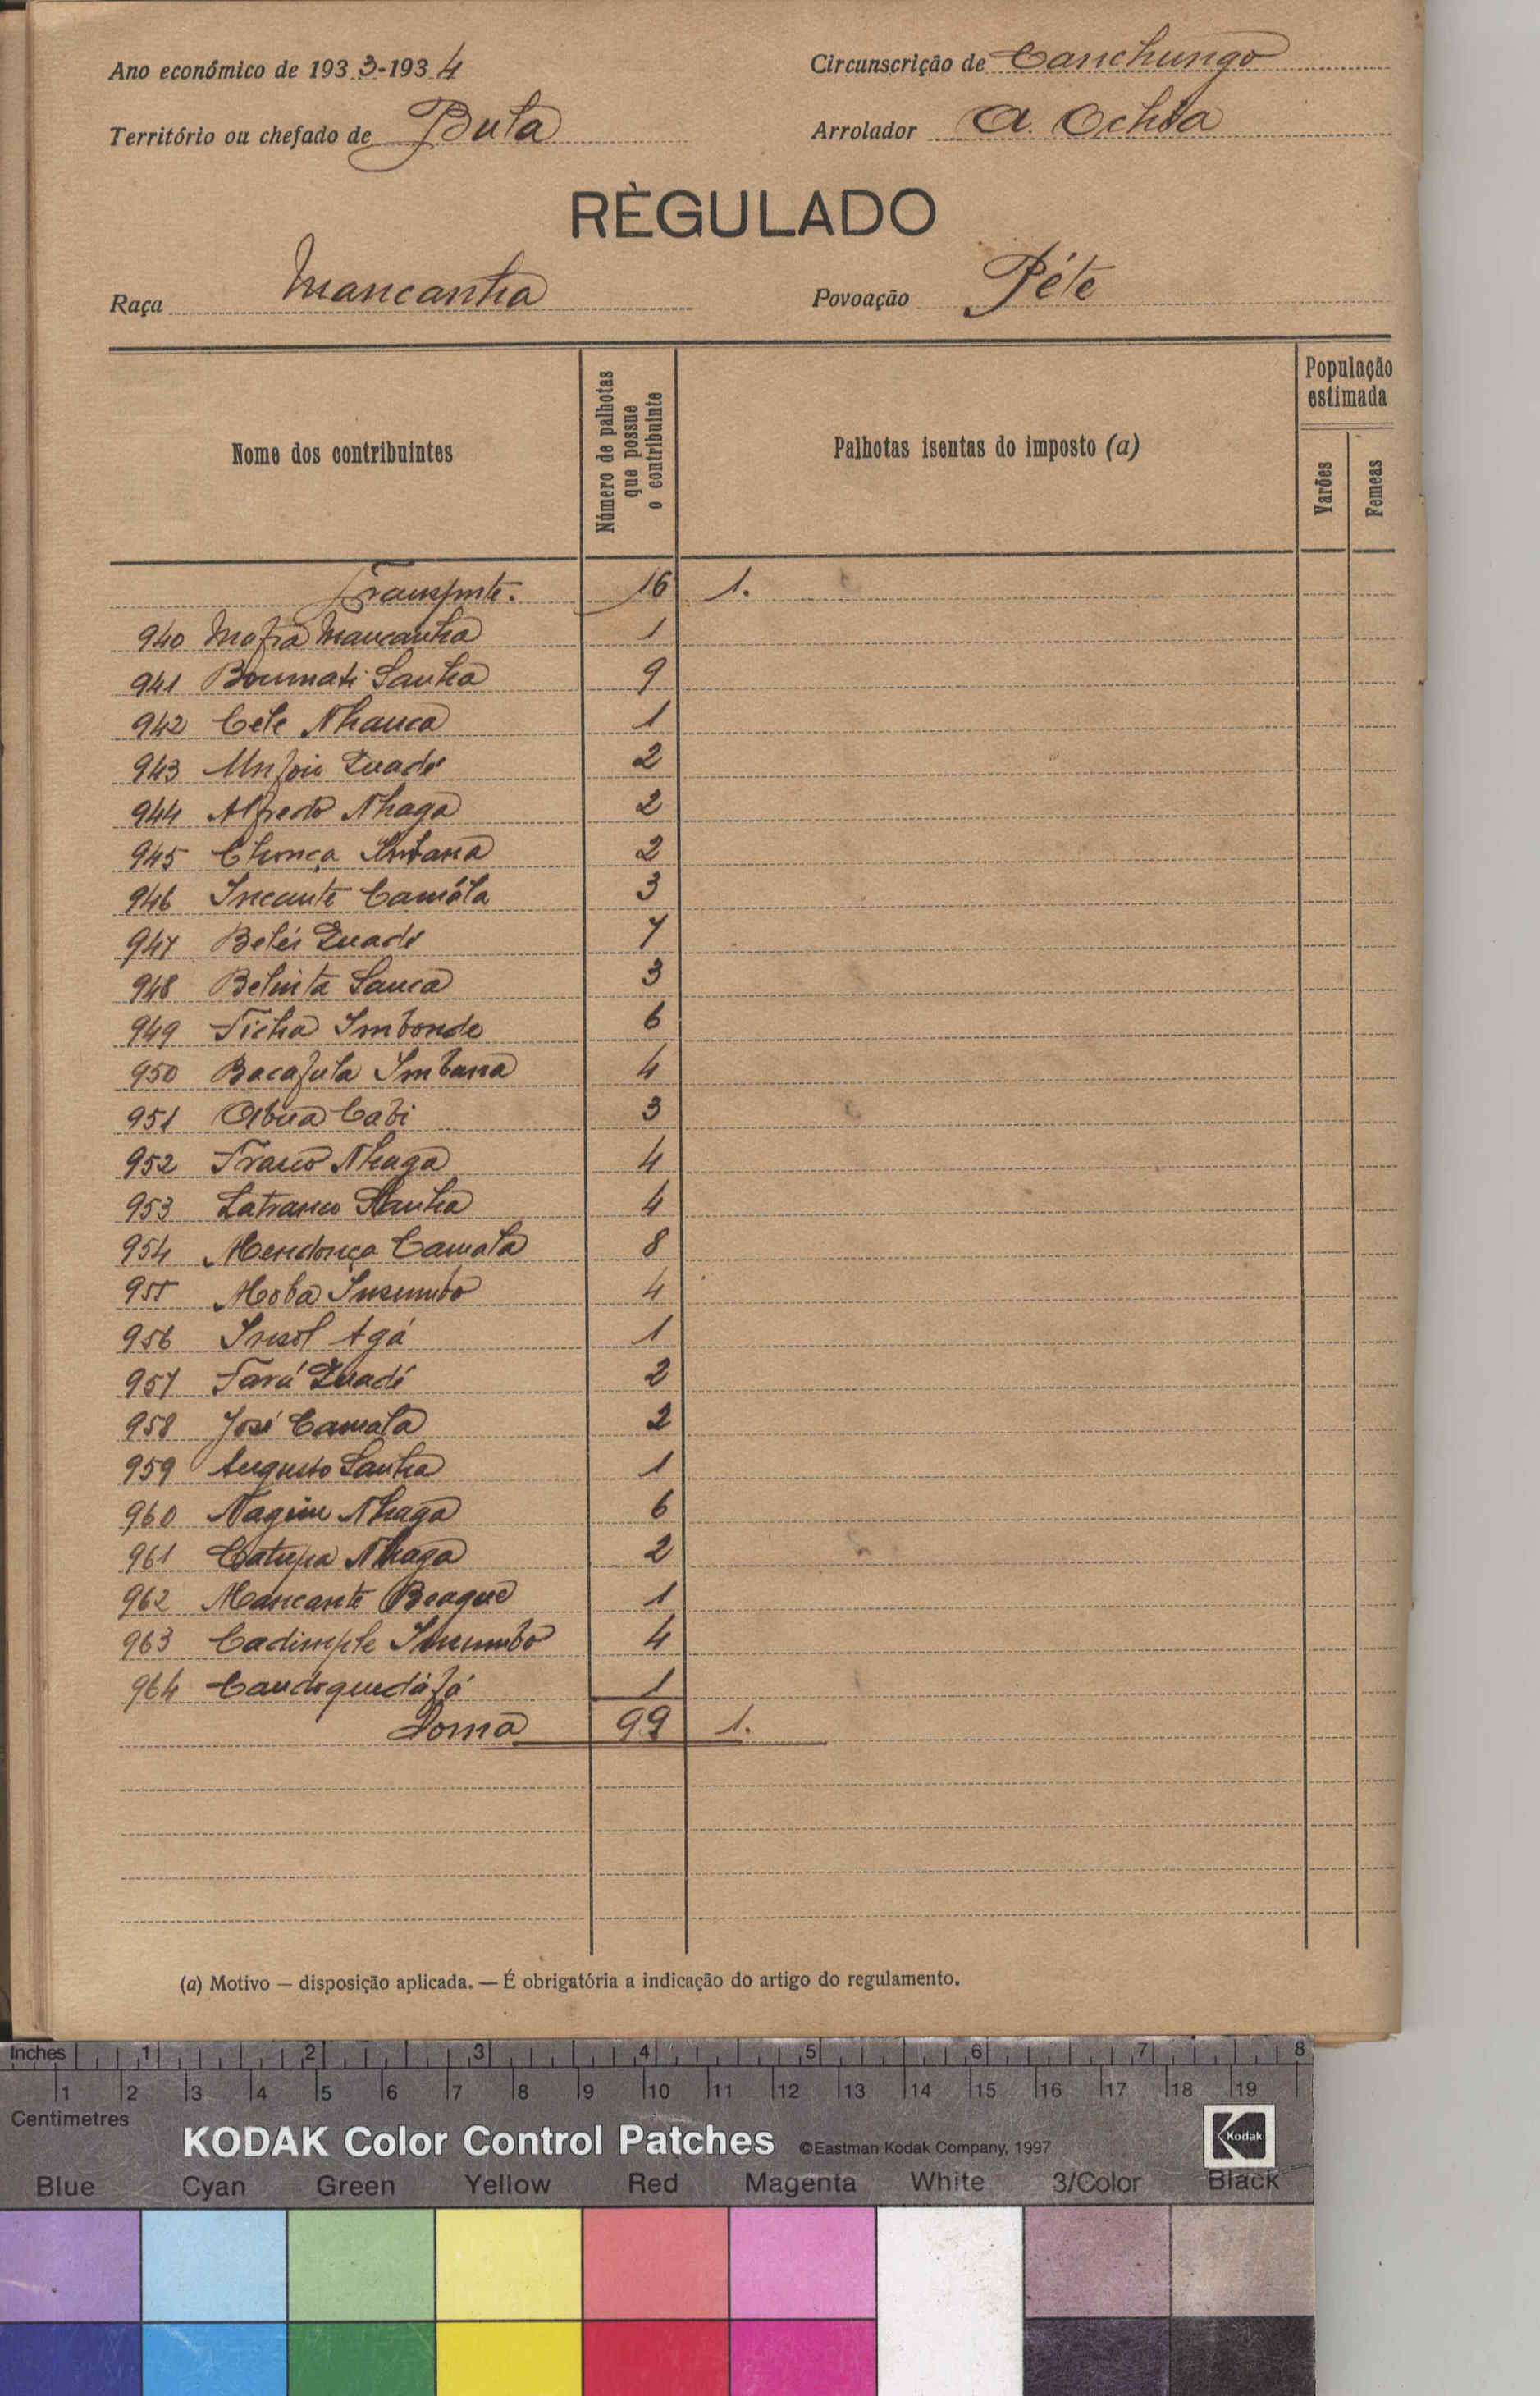 Ano económico de 1933-1934
Circunscrição de Canchungo
Território ou chefado de Bula
Arrolador A. Ochôa
RÈGULADO
Raça Mancanha
Povoação Péte
Nome dos contribuintes
Número de palhotas que possue o contribuinte
Palhotas isentas do imposto (a)
População estimada
Varões
Femeas
Transporte. 16 1.
940 Mafra Mancanha 1
941 Boumati Sanha 9
942 Cele Nhanca 1
943 Quadé 2
944 Alfredo Nhaga 2
945 Chonça Imbana 2
946 Incante Camála 3
947 Quadé 7
948 Belinta Sanca 3
949 Ticha Imbonde 6
950 Bacafula Imbana 4
951 Abua Cabi 3
952 Franco Nhaga 4
953 Latranco Sanha 4
954 Mendonça Camala 8
955 Moba Insumbo 4
956 Insol Agá 1
957 Fará Quadé 2
958 José Camala 2
959 Augusto Sanha 1
960 Nagim Nhaga 6
961 Catupa Nhaga 2
962 Mancante Beague 1
963 Cadimple Insumbo 4
964 1
Soma 99 1.
(a) Motivo — disposição aplicada. — É obrigatória a indicação do artigo do regulamento.
Inches 1 2 3 4 5 6 7 8
1 2 3 4 5 6 7 8 9 10 11 12 13 14 15 16 17 18 19
Centimetres
KODAK Color Control Patches ©Eastman Kodak Company, 1997 Kodak
Blue Cyan Green Yellow Red Magenta White 3/Color Black